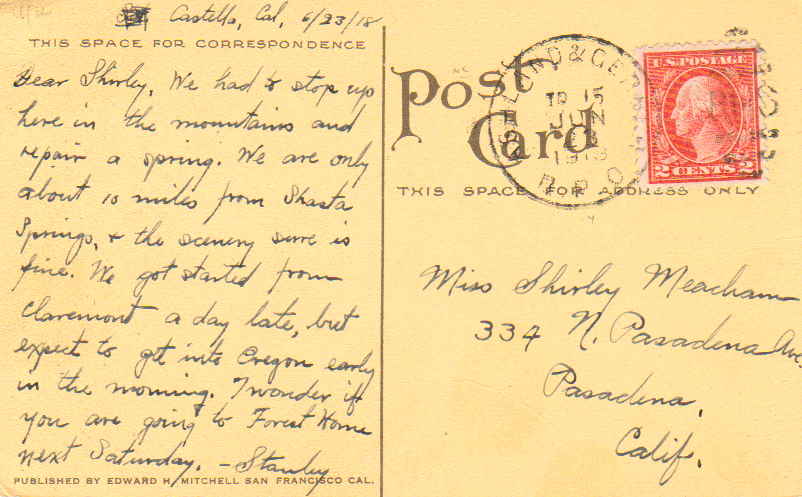 Castella, Cal, 6/23/18
THIS SPACE FOR CORRESPONDENCE
Dear Shirley, We had to stop up
here in the mountains and
repair a spring. We are only
about 10 miles from Shasta
Springs, & the scenery sure is
fine. We got started from
Claremont a day late, but
expect to get into Oregon early
in the morning. I wonder if
you are going to Forest Home
next Saturday. - Stanley
PUBLISHED BY EDWARD H. MITCHELL SAN FRANCISCO CAL.
Post
Card
THIS SPACE FOR ADDRESS ONLY
TR 15
JUN
R.P.O.
U.S. POSTAGE
2 CENTS 2
Miss Shirley Meacham
334 N. Pasadena Ave.
Pasadena,
Calif.